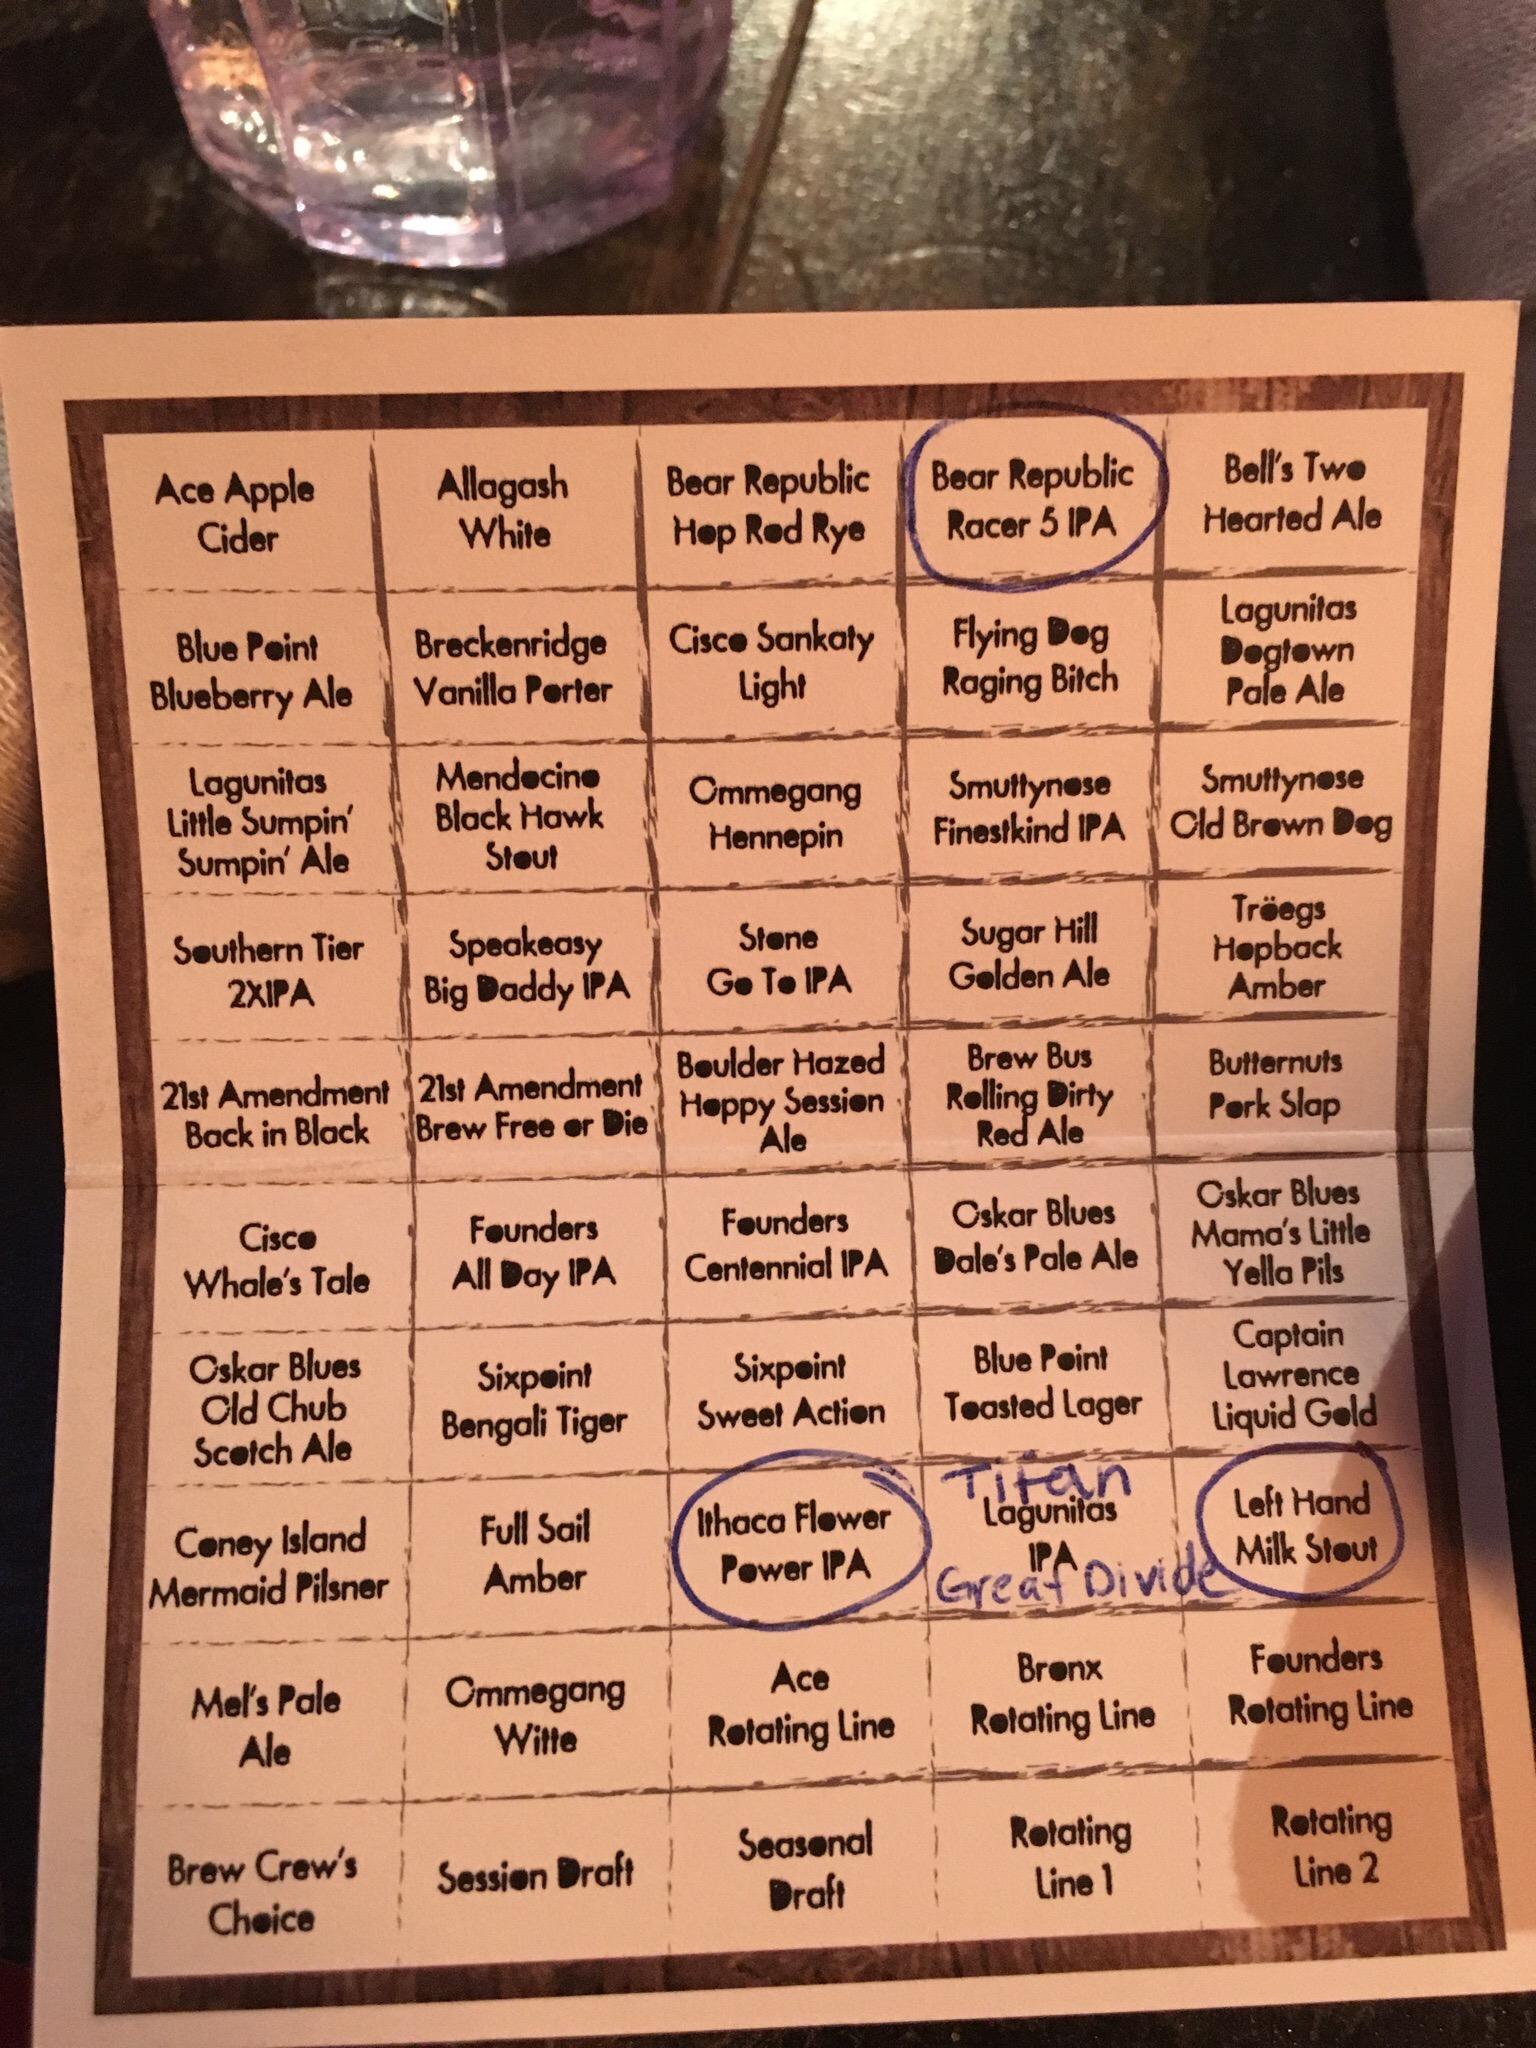 Ace Apple
Cider
Allagash
White
Bear Republic
Hop Rod Rye
Bear Republic
Racer 5 IPA
Bell's Two
Hearted Ale
Blue Point
Blueberry Ale
Breckenridge
Vanilla Porter
Cisco Sankaty
Light
Flying Dog
Raging Bitch
Lagunitas
Dogtown
Pale Ale
Lagunitas
Little Sumpin'
Sumpin' Ale
Mendocino
Black Hawk
Stout
Ommegang
Hennepin
Smuttynose
Finestkind IPA
Smuttynose
Old Brown Dog
Southern Tier
2XIPA
Speakeasy
Big Daddy IPA
Stone
Go To IPA
Sugar Hill
Golden Ale
Tröegs
Hopback
Amber
21st Amendment
Back in Black
21st Amendment
Brew Free or Die
Boulder Hazed
Hoppy Session
Ale
Brew Bus
Rolling Dirty
Red Ale
Butternuts
Pork Slap
Cisco
Whale's Tale
Founders
All Day IPA
Founders
Centennial IPA
Oskar Blues
Dale's Pale Ale
Oskar Blues
Mama's Little
Yella Pils
Oskar Blues
Old Chub
Scotch Ale
Sixpoint
Bengali Tiger
Sixpoint
Sweet Action
Blue Point
Toasted Lager
Captain
Lawrence
Liquid Gold
Coney Island
Mermaid Pilsner
Full Sail
Amber
Ithaca Flower
Power IPA
Titan
Lagunitas
IPA
Great Divide
Left Hand
Milk Stout
Mel's Pale
Ale
Ommegang
Witte
Ace
Rotating Line
Bronx
Rotating Line
Founders
Rotating Line
Brew Crew's
Choice
Session Draft
Seasonal
Draft
Rotating
Line 1
Rotating
Line 2